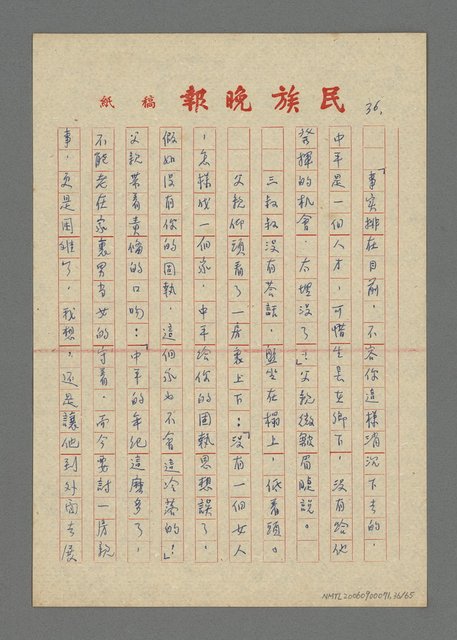 民族晚報 稿紙
36.
「事實排在目前，不容你這樣消沉下去的，
中平是一個人才，可惜生長在鄉下，沒有給他
發揮的機會，太埋沒了！」父親微皺眉睫說。
三叔叔沒有答話，盤坐在榻上，低着頭。
父親仰頭看了一房裏上下：「沒有一個女人
，怎樣成一個家，中平給你的固執思想誤了，
假如沒有你的固執，這個家也不會這冷落的！」
父親帶着責備的口吻：「中平的年紀這麼多了，
不能老在家裏男當女的守着，而今要討一房親
事，更是困難了，我想，還是讓他到外面去展
NMTL20060900091,36/65